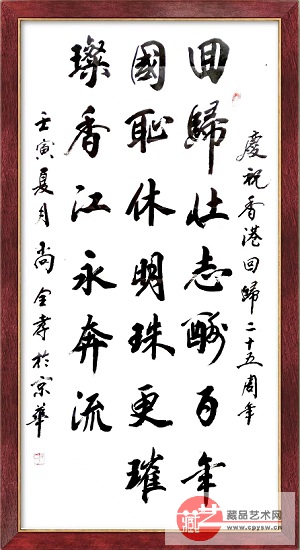 慶祝香港回歸二十五周年
回歸壮志酬百年
國恥休明珠更璀
璨香江永奔流
壬寅夏月尚全孝於京華
藏艺
藏品艺术网
www.cpysw.cn